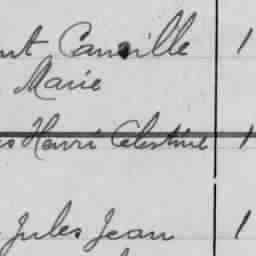 Camille 1
Marie
Henri Célestine 1
Jules Jean 1